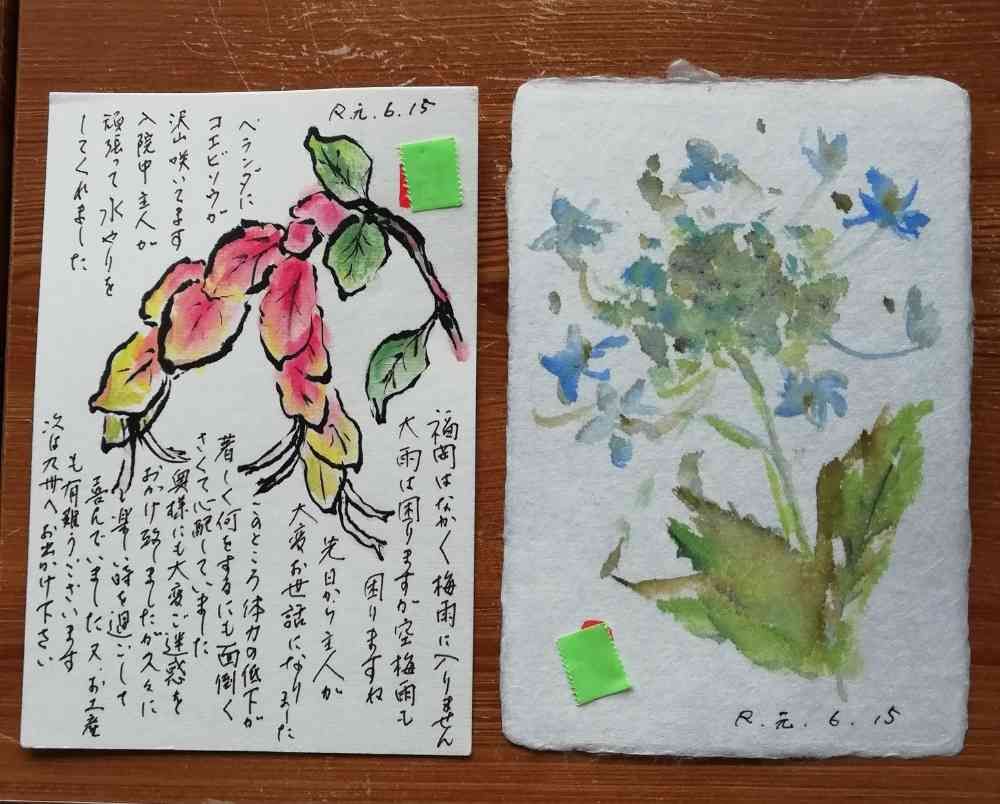 R.元.6.15
ベランダに
コエビソウが
沢山咲いてます
入院中主人が
頑張って水やりを
してくれました
福岡はなか〱梅雨に入りません
大雨は困りますが空梅雨も
困りますね
先日から主人が
大変お世話になりました
このところ体力の低下が
著しく何をするにも面倒く
さくて心配していました
奥様にも大変ご迷惑を
おかけ致しましたが久々に
楽しい時を過ごして
喜んでいました又、お土産
も有難うございます
次は九州へお出かけ下さい
R.元.6.15